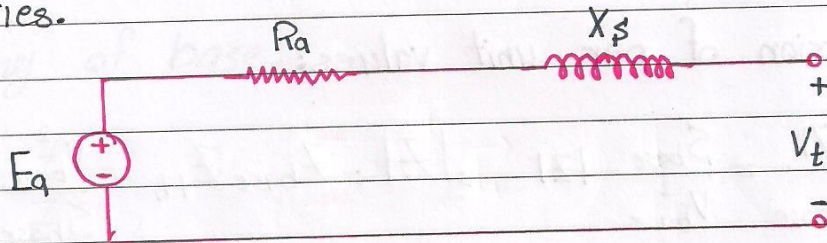 ies.
Ra
Xs
+
Ea
+
-
Vt
-